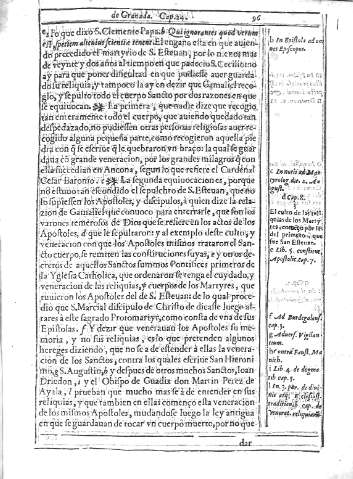 de Granada. Cap. 24. 96
Po que dixo S. Clemente Papa: b Qui ignorantes quod verum
est, speciem alicuius scientiæ tenent. El engaño esta en que auien-
do precedido el martyrio de S. Esteuan, por lo menos mas
de veynte y dos años al tiempo en que padecio S. Cecilio no
ay para que poner dificultad en que pudiesse auer guarda-
do su reliquia, y tampoco la ay en dezir que Gamaliel reco-
gio, y sepulto todo el cuerpo Sancto por dos razones en que
se equiuocan. La primera, que nadie dize que recogio
tan enteramente todo el cuerpo, que auiendo quedado tan
despedaçado, no pudiessen otras personas religiosas auer re-
cogido alguna pequeña parte, como recogieron aquella pie
dra con que se erferio que le quebraron vn braço: la qual se guar
daua con grande veneracion, por los grandes milagros que con
ella succedian en Ancona, segun lo que refiere el Cardenal
Cesar Baronio. La segunda equiuocacion es, porque
no estuuo tan escondido el sepulchro de S. Esteuan, que no
lo supiessen los Apostoles, y discipulos, à quien dize la rela-
cion de Gamaliel que conuoco para encerrarle, que son los
varones temerosos de Dios que se refieren en los actos de los
Apostoles, que le sepultaron: y al exemplo deste culto, y
veneracion con que los Apostoles mismos trataron el San-
cto cuerpo, se remiten las constituciones suyas, y varios de-
cretos de aquellos Sanctos summos Pontifices primeros de
la Yglesia Catholica, que ordenaron se tenga el cuydado, y
veneracion de las reliquias, y cuerpos de los Martyres, que
tuuieron los Apostoles del de S. Esteuan: de lo qual proce-
dio que S. Marcial discipulo de Christo dedicasse luego al-
tares à este sagrado Protomartyr, como consta de vna de sus
Epistolas. f Y dezir que venerauan los Apostoles su me-
moria, y no sus reliquias, es lo que pretenden algunos
hereges diziendo, que no se à de estender à ellas la venera-
cion de los Sanctos, contra los quales escriue San Hieroni-
mo, g S. Augustin, h y despues de otros muchos Sanctos, Ioan
Driedon, i y el Obispo de Guadix don Martin Perez de
Ayala, l prueuan que mucho mas se à de entender en sus
reliquias, y que tambien en ellas començo esta veneracion
de los mismos Apostoles, mudandose luego la ley antigua
en que se guardauan de tocar vn cuerpo muerto, por no que
dar
b In Epistola ad om
nes Episcopos.
El culto de las reli-
quias de los Marty-
res, començo por los
del primero, que
fue San Esteuan.
e Lib. 5. constitut.
Apostolic. cap. 7.
f Ad Burdegalens.
cap. 3.
g Aduers. Vigilan-
tium.
h contra Faust. Ma-
nich.
i Lib. 4. de dogma.
cap. 3.
l In 3. par. de diui-
nis
traditionib. cap. de
venerat. reliquiarum